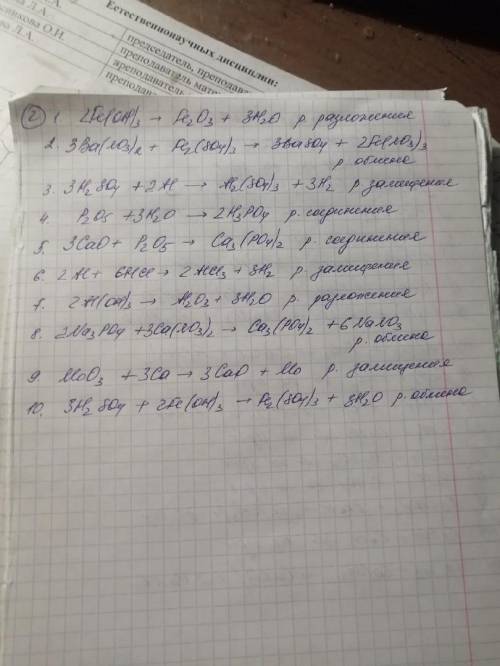 Л.А.
сникова О.И.
Л.А.
Естественнонаучных дисциплин:
председатель, преподава
преподаватель матем
преподаватель
преподава
2 1. 2Fe(OH)3 → Fe2O3 + 3H2O р. разложения
2. 3Ba(NO3)2 + Fe2(SO4)3 → 3BaSO4 + 2Fe(NO3)3
р обмена
3. 3H2SO4 + 2Al → Al2(SO4)3 + 3H2 р замещения
4. P2O5 + 3H2O → 2H3PO4 р. соединения
5. 3CaO + P2O5 → Ca3(PO4)2 р. соединения
6. 2Al + 6HCl → 2AlCl3 + 3H2 р. замещения
7. 2Al(OH)3 → Al2O3 + 3H2O р. разложения
8. 2Na3PO4 + 3Ca(NO3)2 → Ca3(PO4)2 + 6NaNO3
р. обмена
9. MoO3 + 3Ca → 3CaO + Mo р. замещения
10. 3H2SO4 + 2Fe(OH)3 → Fe2(SO4)3 + 3H2O р. обмена